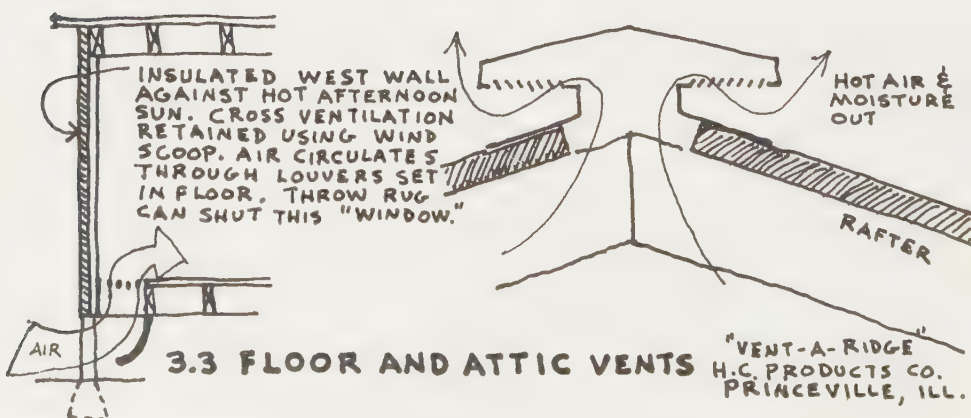 INSULATED WEST WALL
AGAINST HOT AFTERNOON
SUN. CROSS VENTILATION
RETAINED USING WIND
SCOOP. AIR CIRCULATES
THROUGH LOUVERS SET
IN FLOOR. THROW RUG
CAN SHUT THIS "WINDOW."
HOT AIR &
MOISTURE
OUT
RAFTER
AIR
3.3 FLOOR AND ATTIC VENTS
"VENT-A-RIDGE"
H.C. PRODUCTS CO.
PRINCEVILLE, ILL.